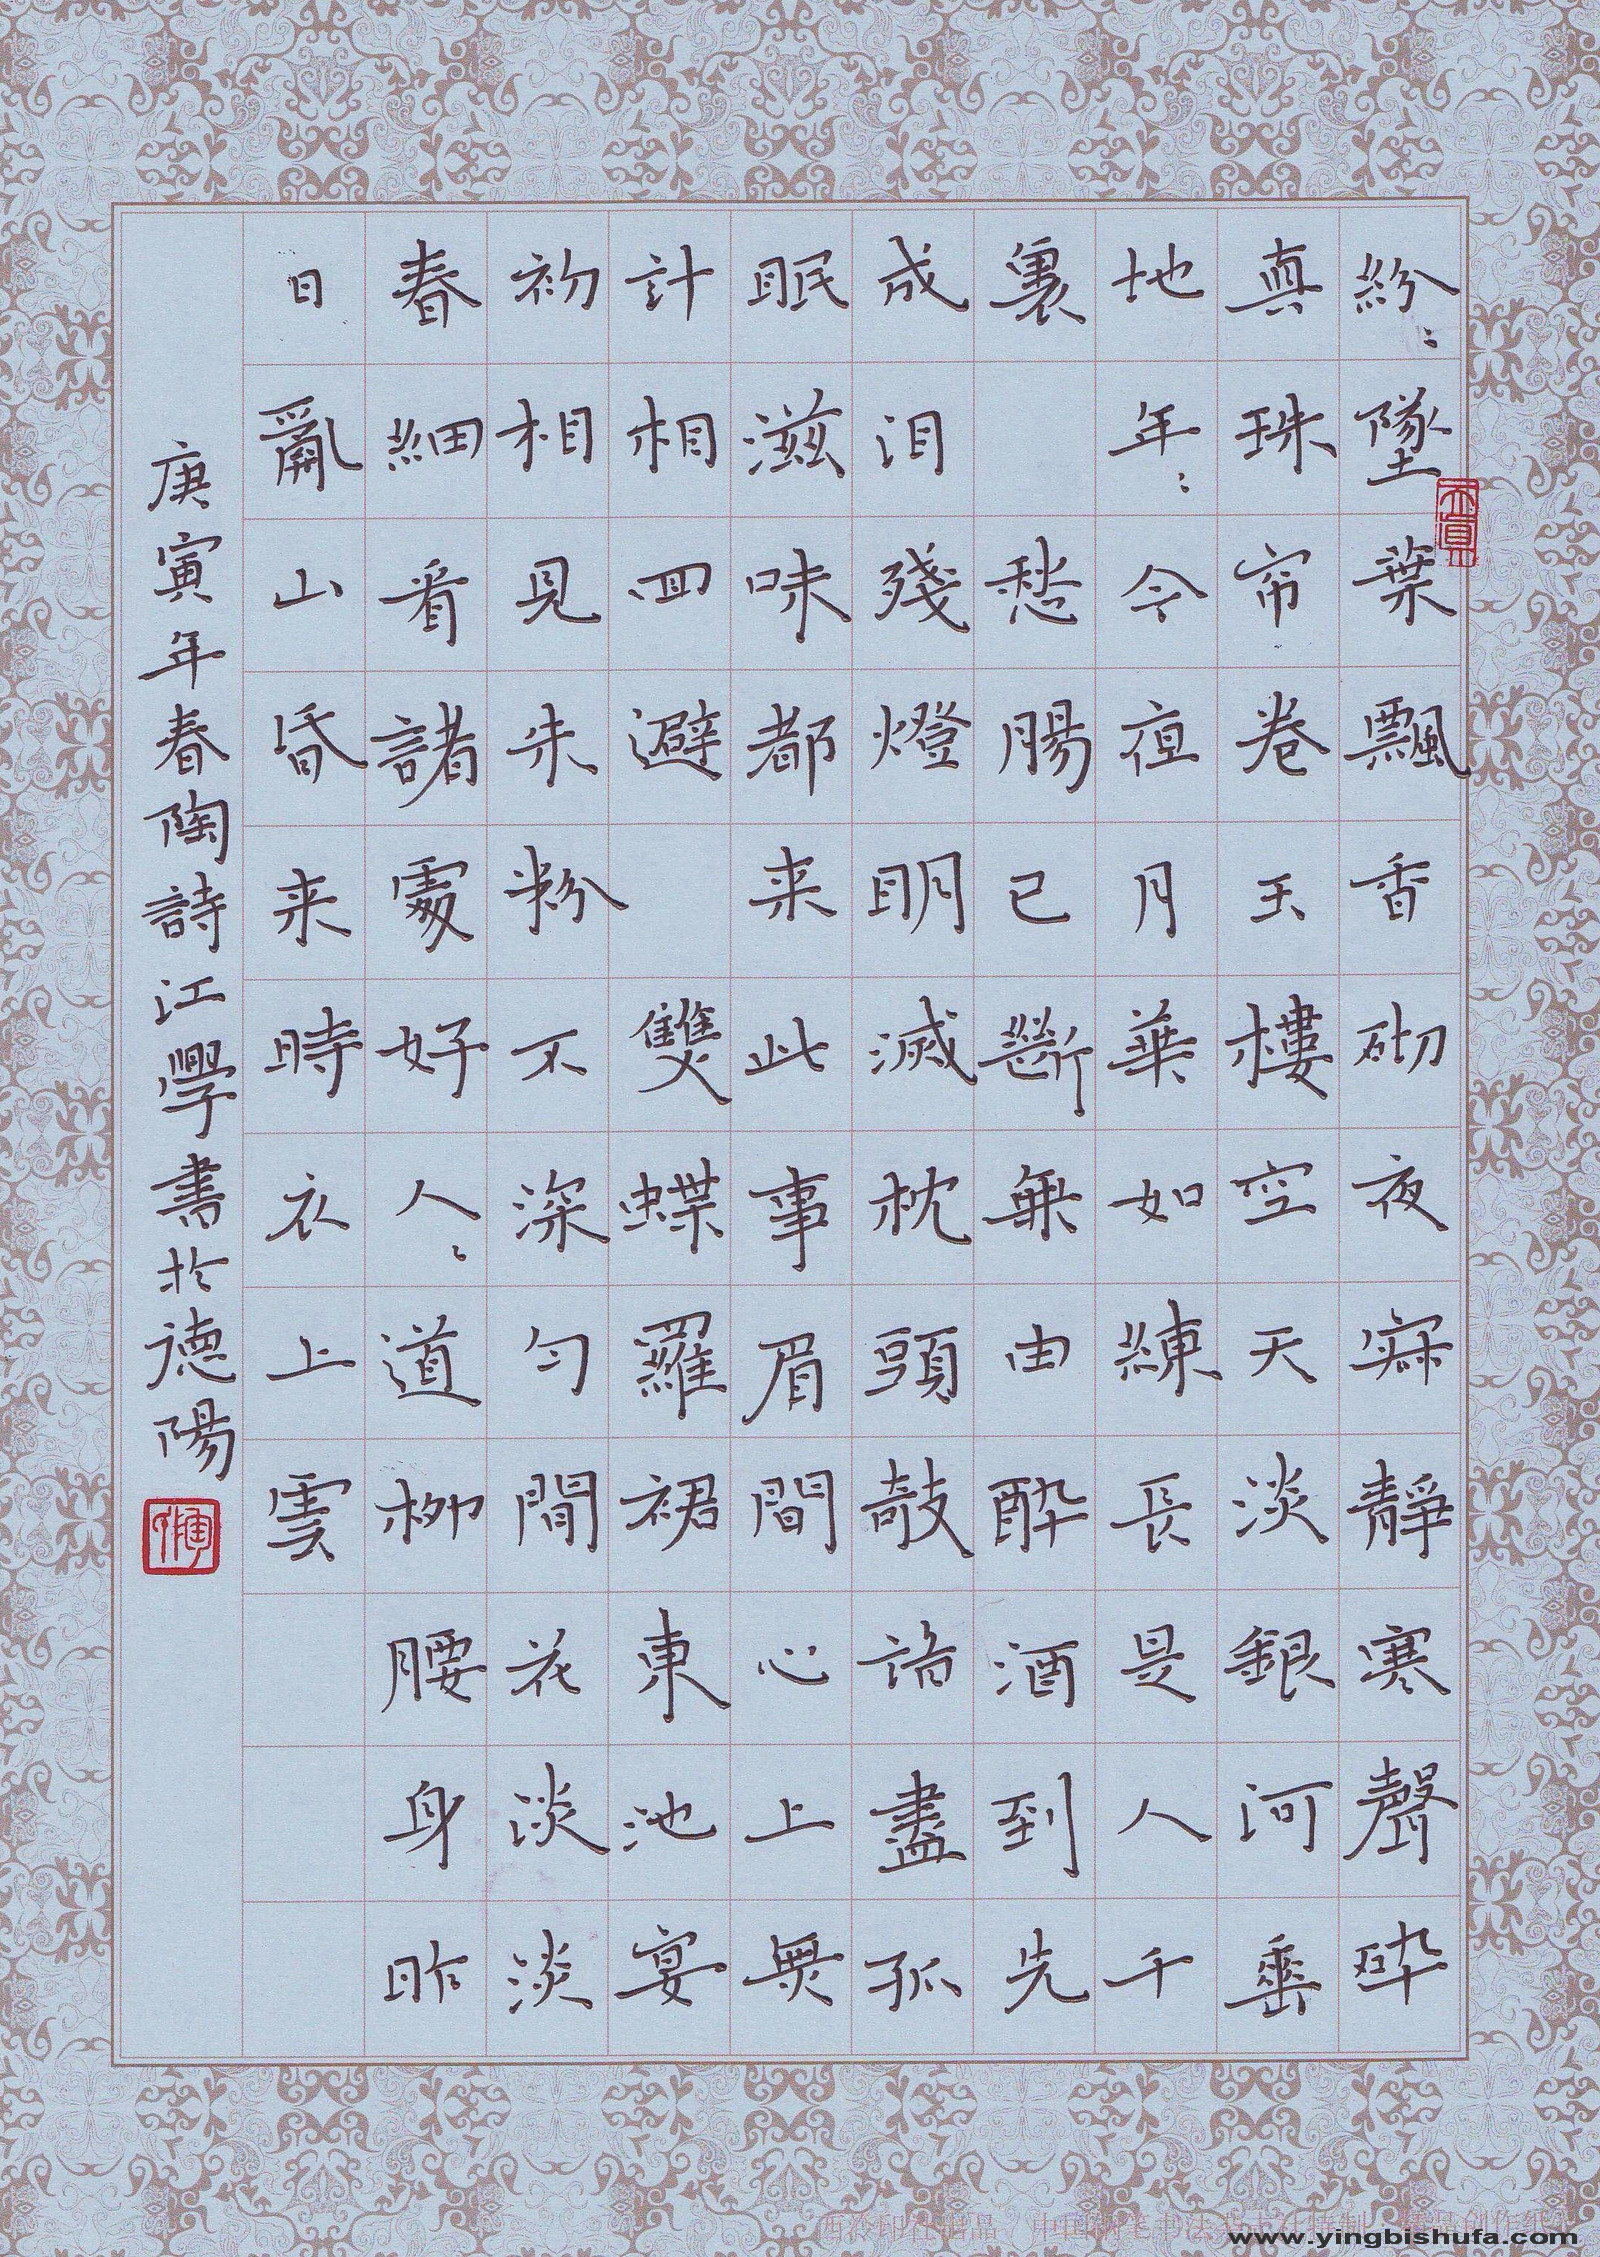 紛〻墜葉飄香砌夜寂靜寒聲碎
真珠帘卷玉樓空天淡銀河垂
地年〻今夜月華如練長是人千
裏 愁腸已斷無由醉酒到先
成泪殘燈明滅枕頭敧諳盡孤
眠滋味都来此事眉間心上無
計相回避 雙蝶羅裙東池宴
初相見朱粉不深匀閒花淡淡
春細看諸處好人〻道柳腰身昨
日亂山昏来時衣上雲
庚寅年春陶詩江學書於德陽
www.yingbishufa.com